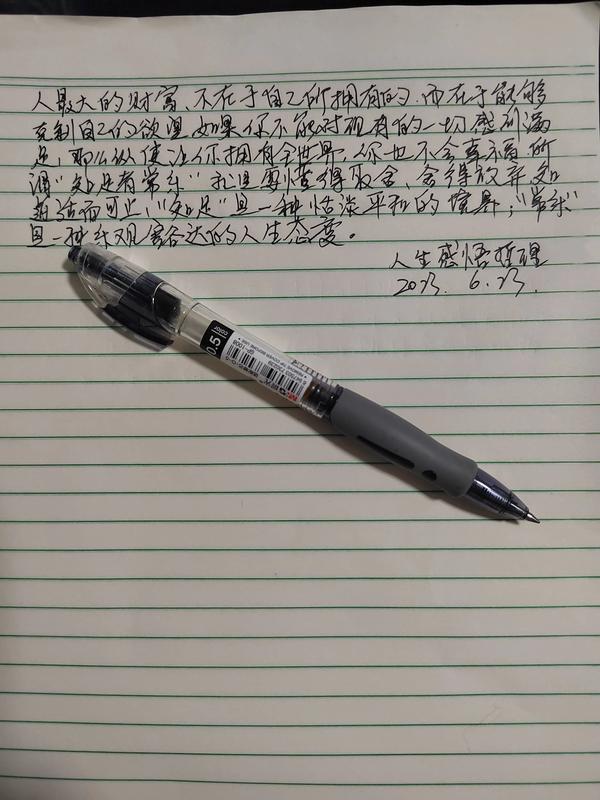 人最大的财富、不在于自己所拥有的.而在于能够
克制自己的欲望.如果你不能对现有的一切感到满
足,那么纵使让你拥有全世界,你也不会幸福.所
谓“知足者常乐”就是要懂得取舍、舍得放弃.知
适可而止、“知足”是一种恬淡平和的境界;“常乐”
是一种乐观豁达的人生态度。
人生感悟哲理
2023. 6.23.
0.5 color